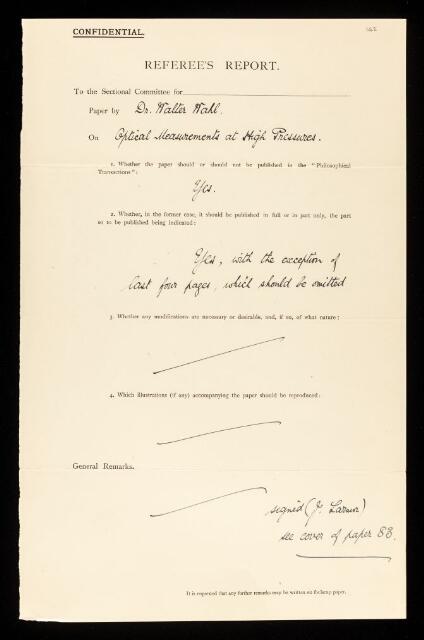 CONFIDENTIAL.
REFEREE'S REPORT.
To the Sectional Committee for
Paper by Dr. Walter Wahl.
On Optical Measurements at High Pressures.
1. Whether the paper should or should not be published in the "Philosophical
Transactions":
Yes.
2. Whether, in the former case, it should be published in full or in part only, the part
so to be published being indicated:
Yes, with the exception of
last four pages, which should be omitted
3. Whether any modifications are necessary or desirable, and, if so, of what nature:
4. Which illustrations (if any) accompanying the paper should be reproduced:
General Remarks.
signed (J. Larmor)
see cover of paper 88.
It is requested that any further remarks may be written on foolscap paper.